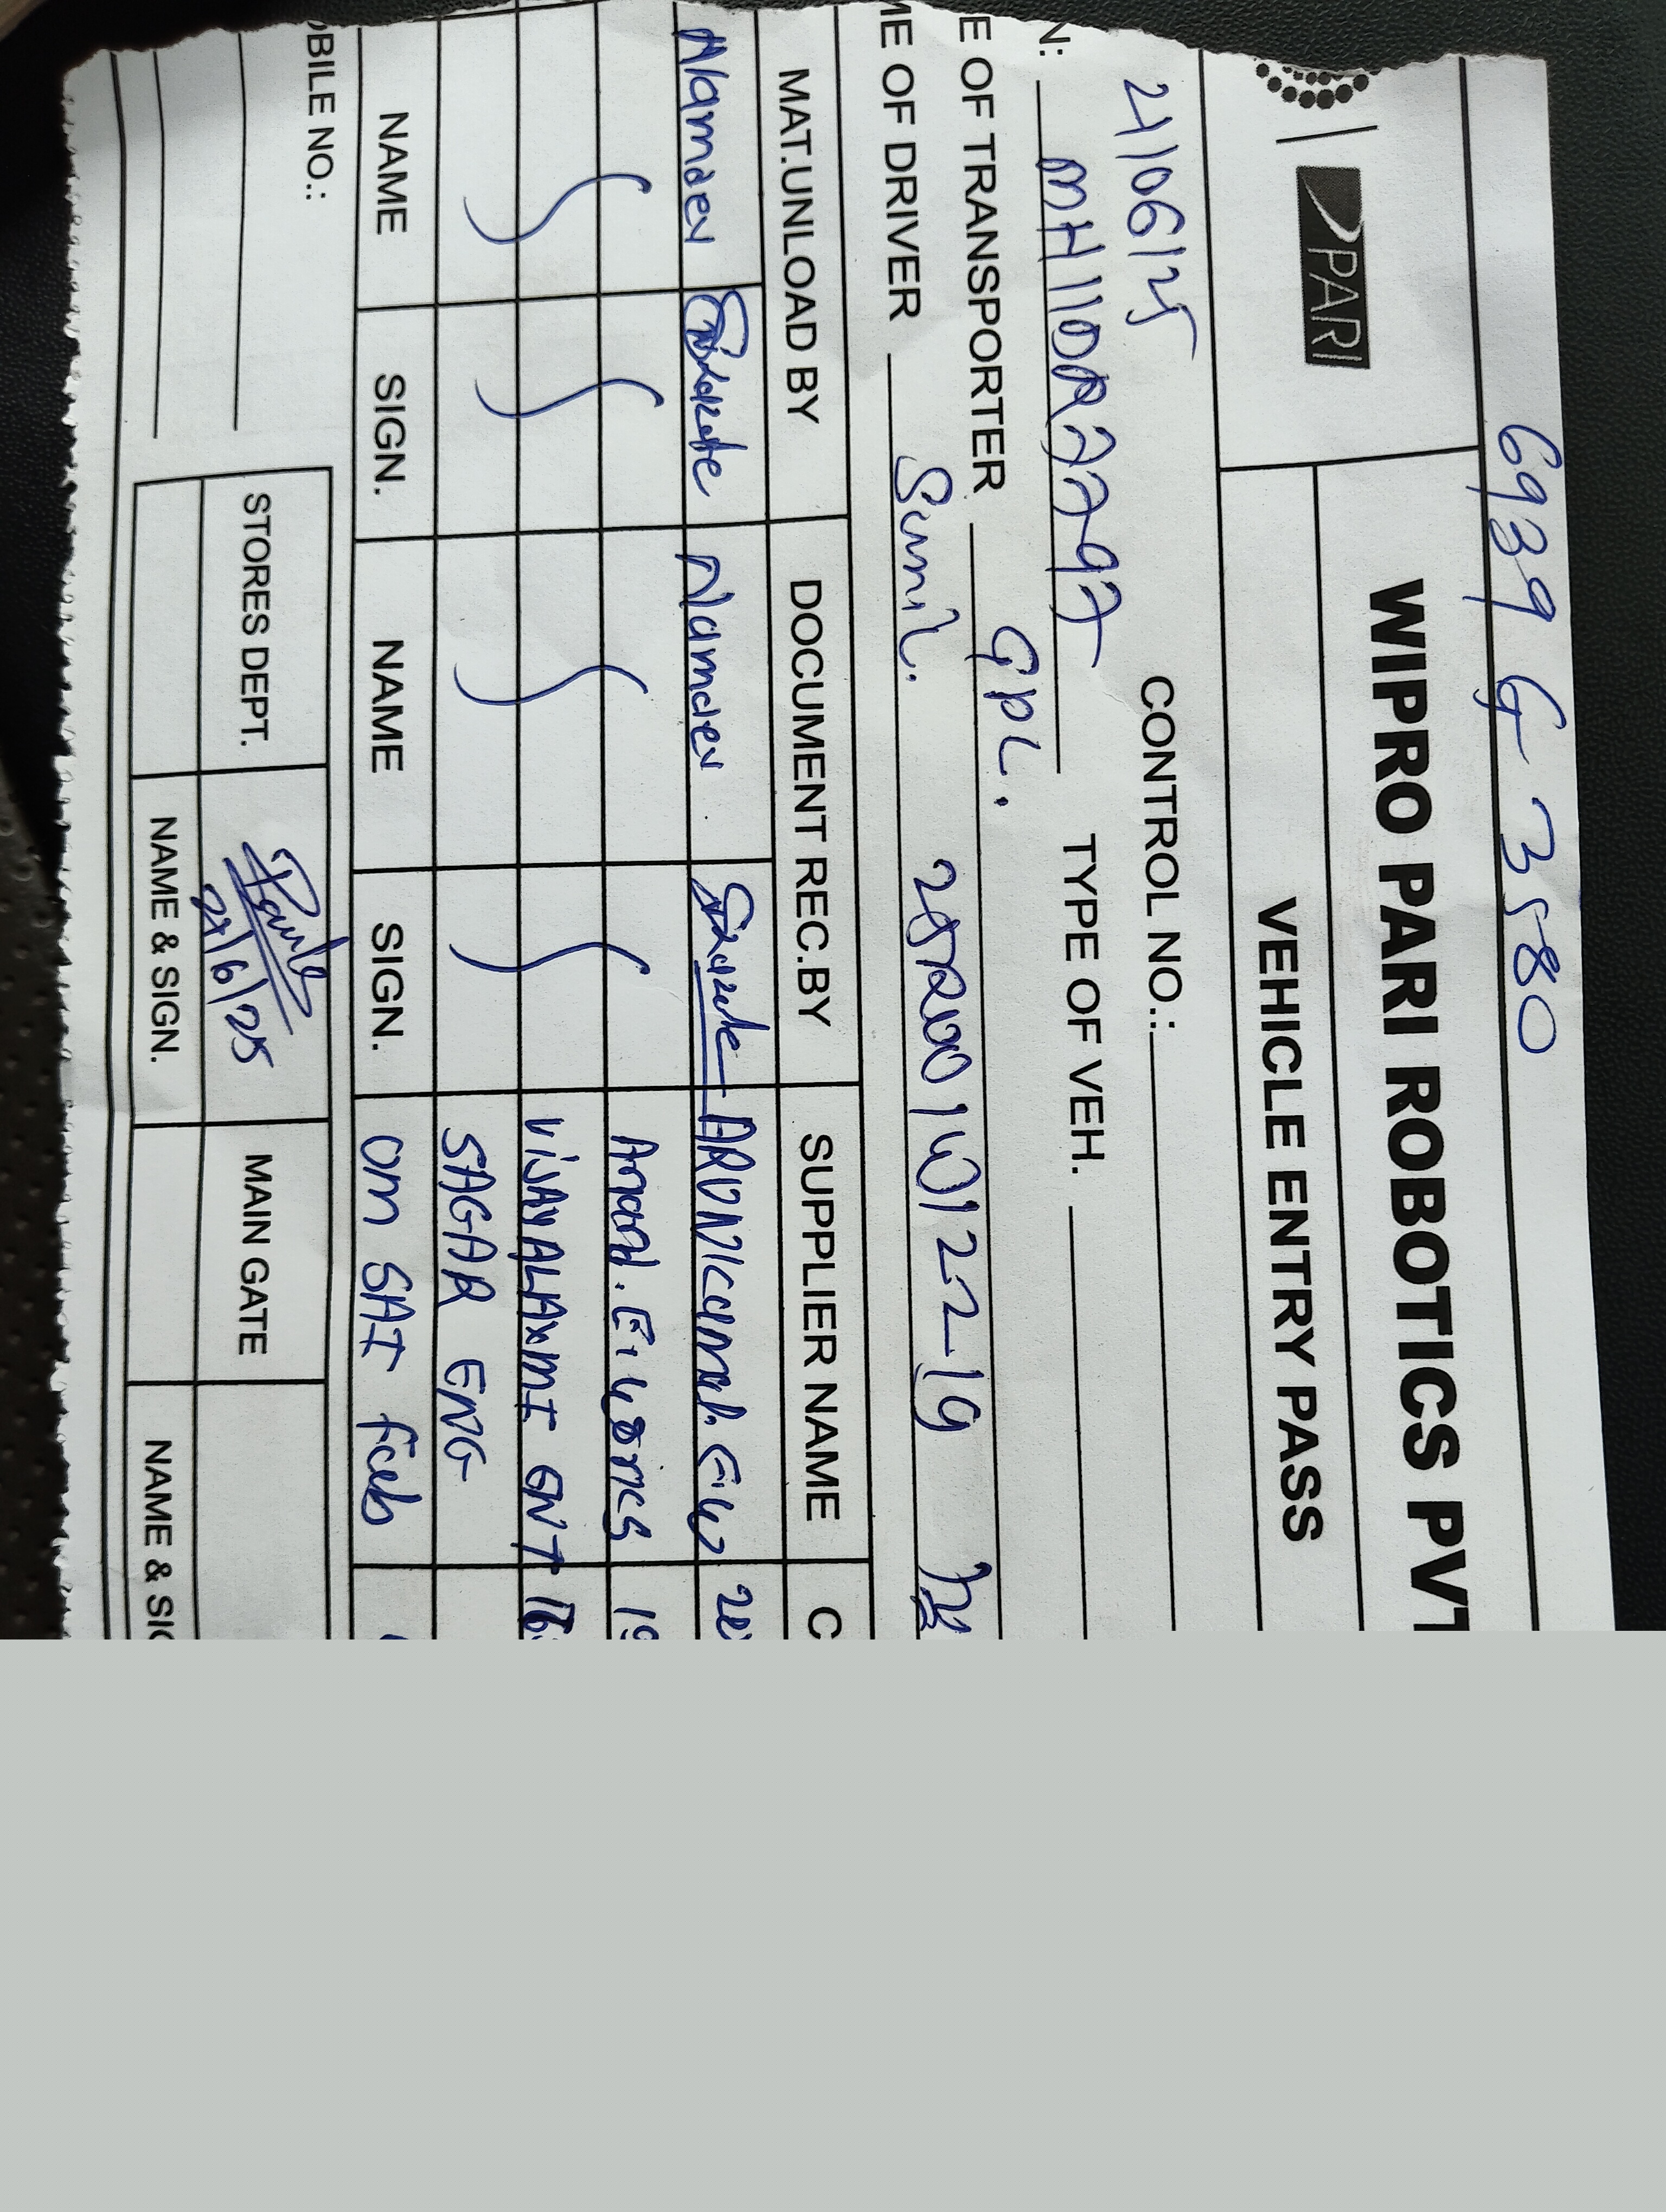 6939 G 3580
PARI
WIPRO PARI ROBOTICS PVT
VEHICLE ENTRY PASS
21/06/25
CONTROL NO.:
N: MH11DR7797 TYPE OF VEH.
E OF TRANSPORTER GPL.
ME OF DRIVER Sunil.
MAT.UNLOAD BY DOCUMENT REC.BY SUPPLIER NAME C
Namdev Namdev
Anand. E. works
VIJAYALAXMI ENT
SAGAR ENG
NAME SIGN. NAME SIGN. OM SAI Fab
OBILE NO.:
STORES DEPT. 21/6/25 MAIN GATE
NAME & SIGN. NAME & SIG